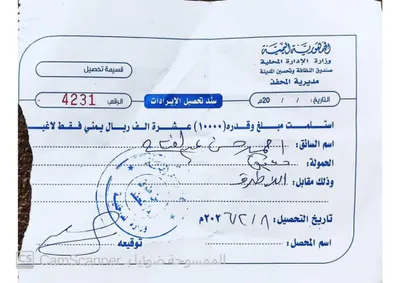 الجمهورية اليمنية
وزارة الإدارة المحلية
صندوق النظافة وتحسين المدينة
مديرية المحفد
قسيمة تحصيل
التاريخ: / / 20م
سند تحصيل الإيرادات
الرقم: 4231
استلمت مبلغ وقدره (١٠٠٠٠) عشرة الف ريال يمني فقط لاغير
اسم السائق: احمد حسن عبدالفتاح
الحمولة:
وذلك مقابل:
تاريخ التحصيل ٢٠٢٦/٢/٨م
اسم المحصل: توقيعه
CS CamScanner الممسوحة ضوئيا بـ